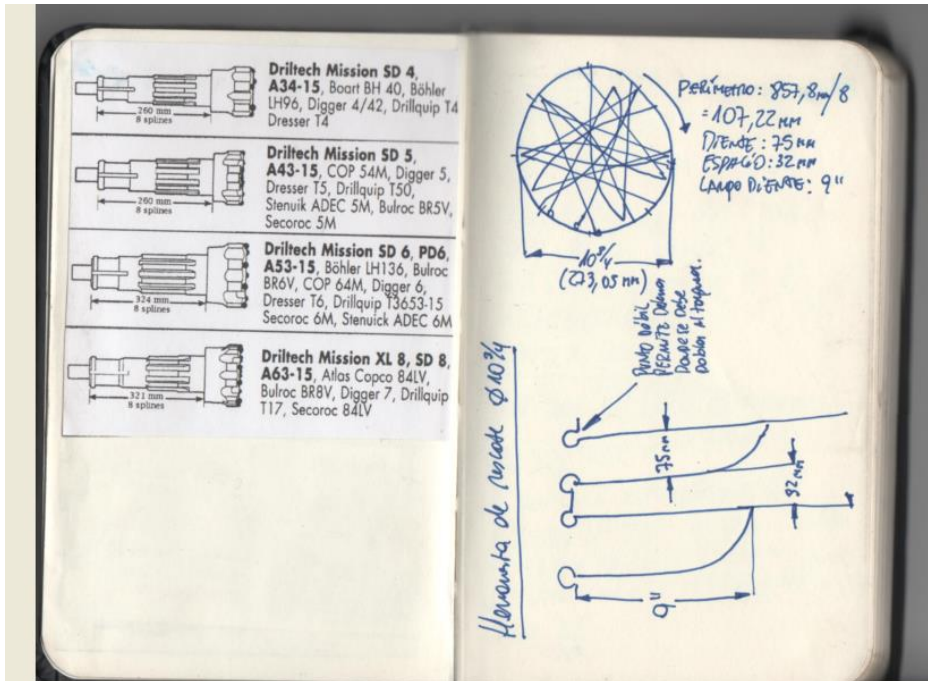 Driltech Mission SD 4,
A34-15, Boart BH 40, Böhler
LH96, Digger 4/42, Drillquip T4
Dresser T4
260 mm
8 splines
Driltech Mission SD 5,
A43-15, COP 54M, Digger 5,
Dresser T5, Drillquip T50,
Stenuik ADEC 5M, Bulroc BR5V,
Secoroc 5M
260 mm
8 splines
Driltech Mission SD 6, PD6,
A53-15, Böhler LH136, Bulroc
BR6V, COP 64M, Digger 6,
Dresser T6, Drillquip T3653-15
Secoroc 6M, Stenuick ADEC 6M
324 mm
8 splines
Driltech Mission XL 8, SD 8,
A63-15, Atlas Copco 84LV,
Bulroc BR8V, Digger 7, Drillquip
T17, Secoroc 84LV
321 mm
8 splines
PERÍMETRO: 857,8mm/8
=107,22 mm
DIENTE: 75mm
ESPACIO: 32mm
LARGO DIENTE: 9"
10 3/4
(273,05 mm)
PUNTO DÉBIL
PERMITE
Herramienta de rescate ø 10 3/4
75mm
32mm
9"